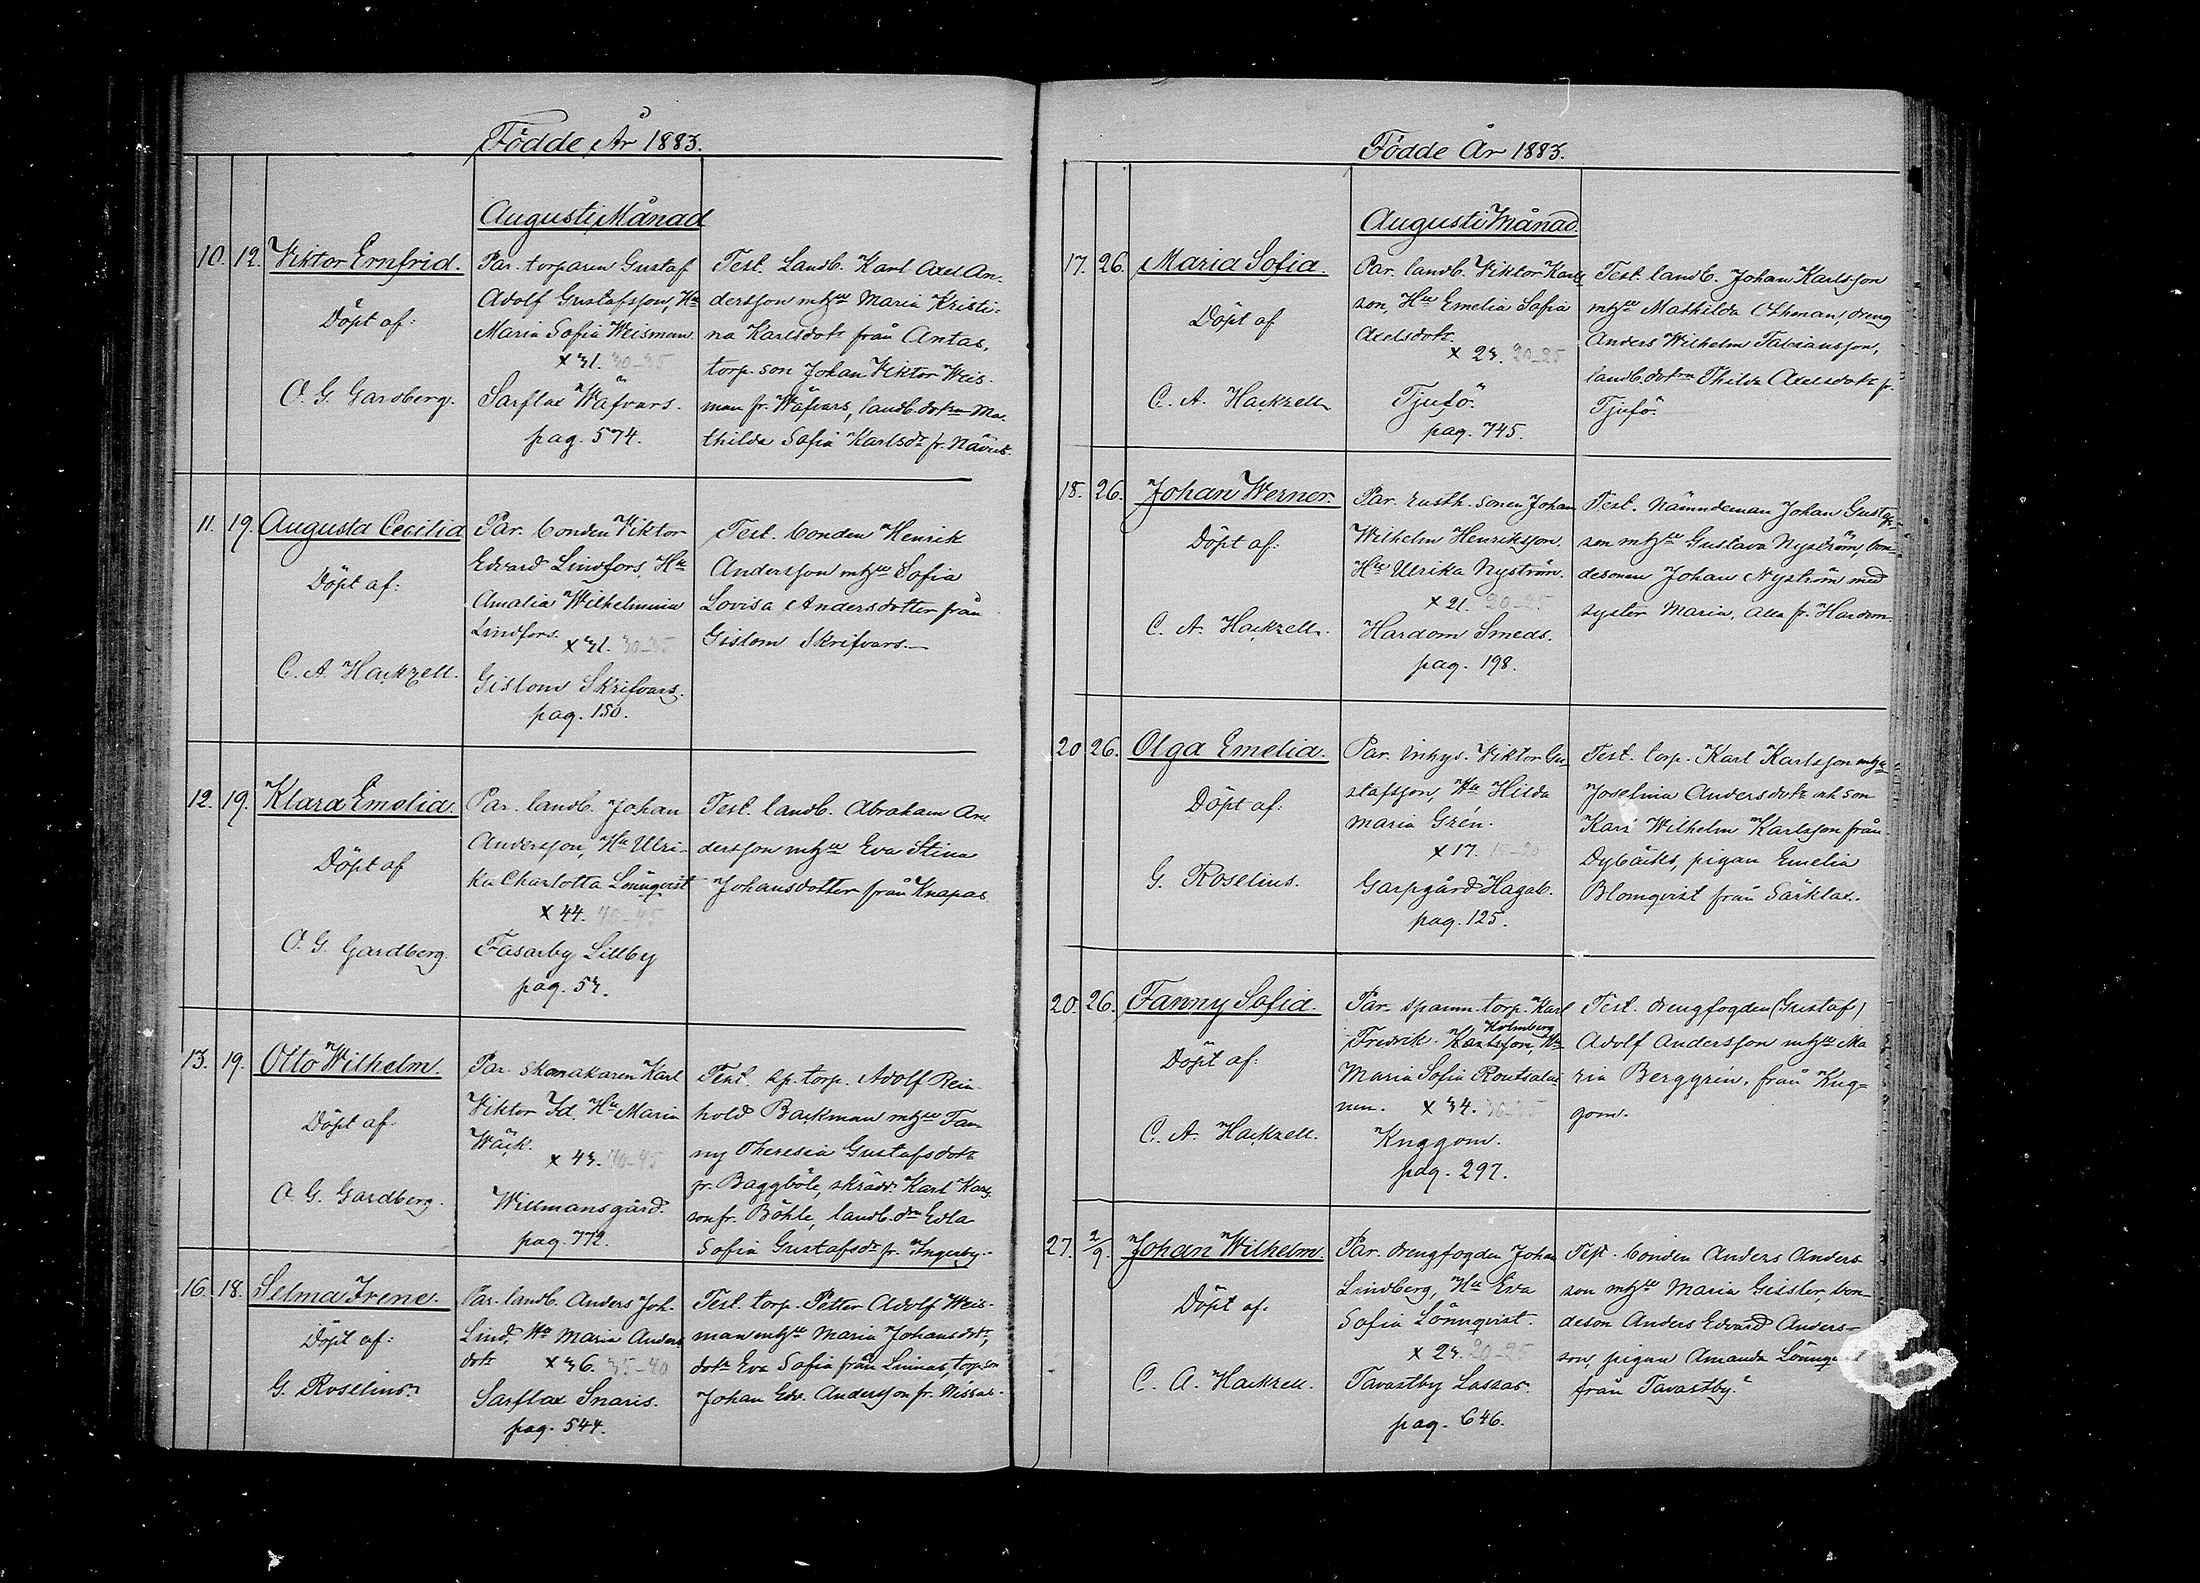 Födde År 1883.
Augusti Månad
10. 12. Viktor Ernfrid.
Döpt af:
O. G. Gardberg.
Par. torparen Gustaf
Adolf Gustafsson, Hu
Maria Sofia Weisman.
x 31. 30-35
Sarflax Wäfvars.
pag. 574.
Test. Landb. Karl Axel An-
dersson m hu Maria Kristi-
na Karlsdotr från Antas,
torp. son Johan Viktor Weis-
man fr. Wäfvars, landb. dotrn Ma-
thilda Sofia Karlsdr fr.
11. 19. Augusta Cecilia
Döpt af:
C. A. Hackzell.
Par. bonden Viktor
Edvard Lindfors, Hu
Amalia Wilhelmina
Lindfors. x 31. 30-35
Gislom Skrifvars.
pag. 150.
Test. bonden Henrik
Andersson m hu Sofia
Lovisa Andersdotter från
Gislom Skrifvars.
12. 19. Klara Emelia.
Döpt af
O. G. Gardberg.
Par. landb. Johan
Andersson, Hu Ulri-
ka Charlotta Lönnqvist
x 44. 40-45
Fasarby Lillby
pag. 53.
Test. landb. Abraham An-
dersson m hu Eva Stina
Johansdotter från Knapas
13. 19. Otto Wilhelm.
Döpt af
O. G. Gardberg.
Par. skomakaren Karl
Viktor Id. Hu Maria
Wäck.
x 43. 40-45
Willmansgård.
pag. 772.
Test. sp. torp. Adolf Rein-
hold Backman m hu Fan-
ny Theresia Gustafsdotr
fr. Baggböle, skrädd. Karl Karls-
son fr. Böhle, landb. drn Edla
Sofia Gustafsdr fr. Ingerby.
16. 18. Selma Irene.
Döpt af:
G. Roselius.
Par. landb. Anders Joh.
Lind, Hu Maria Anders
dotr x 36. 35-40
Sarflax Snaris.
pag. 544.
Test. torp. Petter Adolf Weis-
man m hu Maria Johansdotr,
dotr Eva Sofia från Linnas, torp. son
Johan Edv. Andersson fr. Nissas.
Födde År 1883.
Augusti Månad.
17. 26. Maria Sofia.
Döpt af
C. A. Hackzell
Par. landb. Viktor Karls
son, Hu Emelia Sofia
Axelsdotr
x 23. 20-25
Tjufö.
pag. 745.
Test. landb. Johan Karlsson
m hu Mathilda Öhman, dreng
Anders Wilhelm Fabiansson,
landb. dotrn Thilda Axelsdotr fr.
Tjufö.
18. 26. Johan Werner.
Döpt af:
C. A. Hackzell.
Par. rusth. sonen Johan
Wilhelm Henriksson.
Hu Ulrika Nyström.
x 21. 20-25
Hardom Smeds.
pag. 198.
Test. Nämndeman Johan Gustafs-
son m hu Gustava Nyström, bon-
desonen Johan Nyström med
syster Maria, alla fr. Hardom
20 26. Olga Emelia.
Döpt af:
G. Roselius.
Par. inhys. Viktor Gu-
stafsson, Hu Hilda
Maria Grén.
x 17. 15-20
Garpgård Hagab.
pag. 125.
Test. torp. Karl Karlsson m hu
Joselina Andersdotr och son
Karl Wilhelm Karlsson från
Dybäcks, pigan Emelia
Blomqvist från Särklax.
20. 26. Fanny Sofia.
Döpt af:
C. A. Hackzell.
Par. spanm. torp. Karl
Holmberg
Fredrik Karlsson, Hu
Maria Sofia Routsalai
nen. x 34. 30-35
Kuggom.
pag. 297.
Test. drengfogden (Gustaf)
Adolf Andersson m hu Ma
ria Berggrén, från Kug-
gom.
27. 2/9. Johan Wilhelm.
Döpt af.
C. A. Hackzell.
Par. drengfogden Johan
Lindberg, Hu Eva
Sofia Lönnqvist.
x 23. 20-25
Tavastby Lassas.
pag. 646.
Test. bonden Anders Anders
son m hu Maria Gissler, bon-
deson Anders Edvard Anders-
son, pigan Amanda Lönnqvist
från Tavastby.